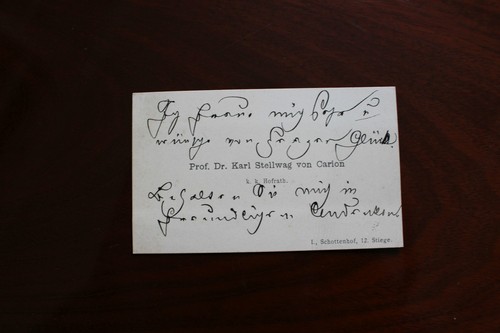 Ich freue mich sehr u
wünsche von Herzen Glück.
Prof. Dr. Karl Stellwag von Carion
k. k. Hofrath.
Behalten Sie mich in
freundlichem Andenken
I., Schottenhof, 12. Stiege.